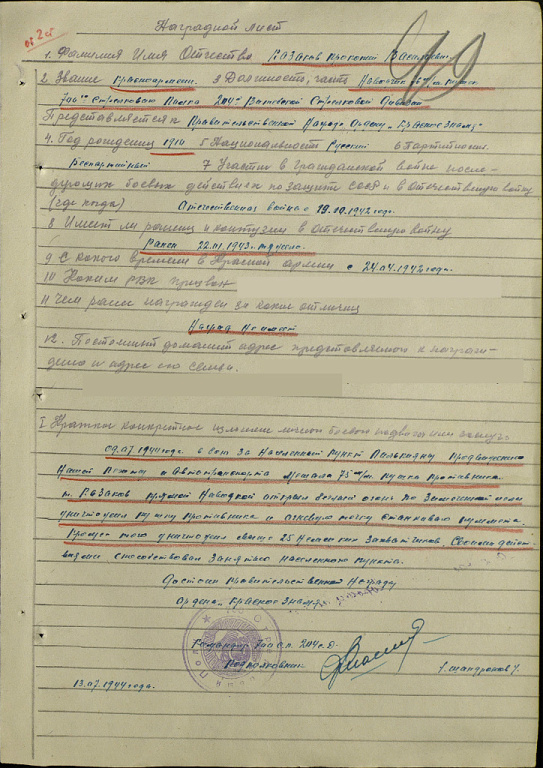 от 2 ст
Наградной лист
1. Фамилия Имя Отчество Казаков Прокопий Васильевич
2. Звание Красноармеец 3 Должность, часть Наводчик
700го Стрелкового Полка 204й Витебской Стрелковой Дивизии
Представляется к Правительственной Награде Ордену „Красное Знамя"
4. Год рождения 1910 5 Национальность Русский 6 Партийность
Беспартийный 7 Участие в Гражданской войне после-
дующих боевых действиях по защите СССР и в отечественную войну
(где когда) Отечественная война с 19.10.1942 года.
8 Имеет ли ранения и контузии в отечественную войну
Ранен 22.01.1943 г. тяжело.
9 С какого времени в Красной армии с 24.04.1942 года.
10 Каким РВК призван
11 Чем ранее награжден за какие отличия
Наград не имеет
12. Постоянный домашний адрес представляемого к награж-
дению и адрес его семьи.
I Краткое конкретное изложение личного боевого подвига или заслуг
09.07.1944 года в бою за населенный пункт Продвижению
Нашей Пехоты и Автотранспорта Мешала 75 м/м. пушка противника
т. Казаков прямой Наводкой открыл огонь по цели
уничтожил пушку противника и огневую точку станкового пулемета.
Кроме того уничтожил свыше 25 немецких захватчиков Своими дейст-
виями способствовал Занятию населенного пункта.
Достоин Правительственной Награды
Ордена „Красное Знамя"
Командир 700 с.п. 204 с.д.
Подполковник
13.07.1944 года.